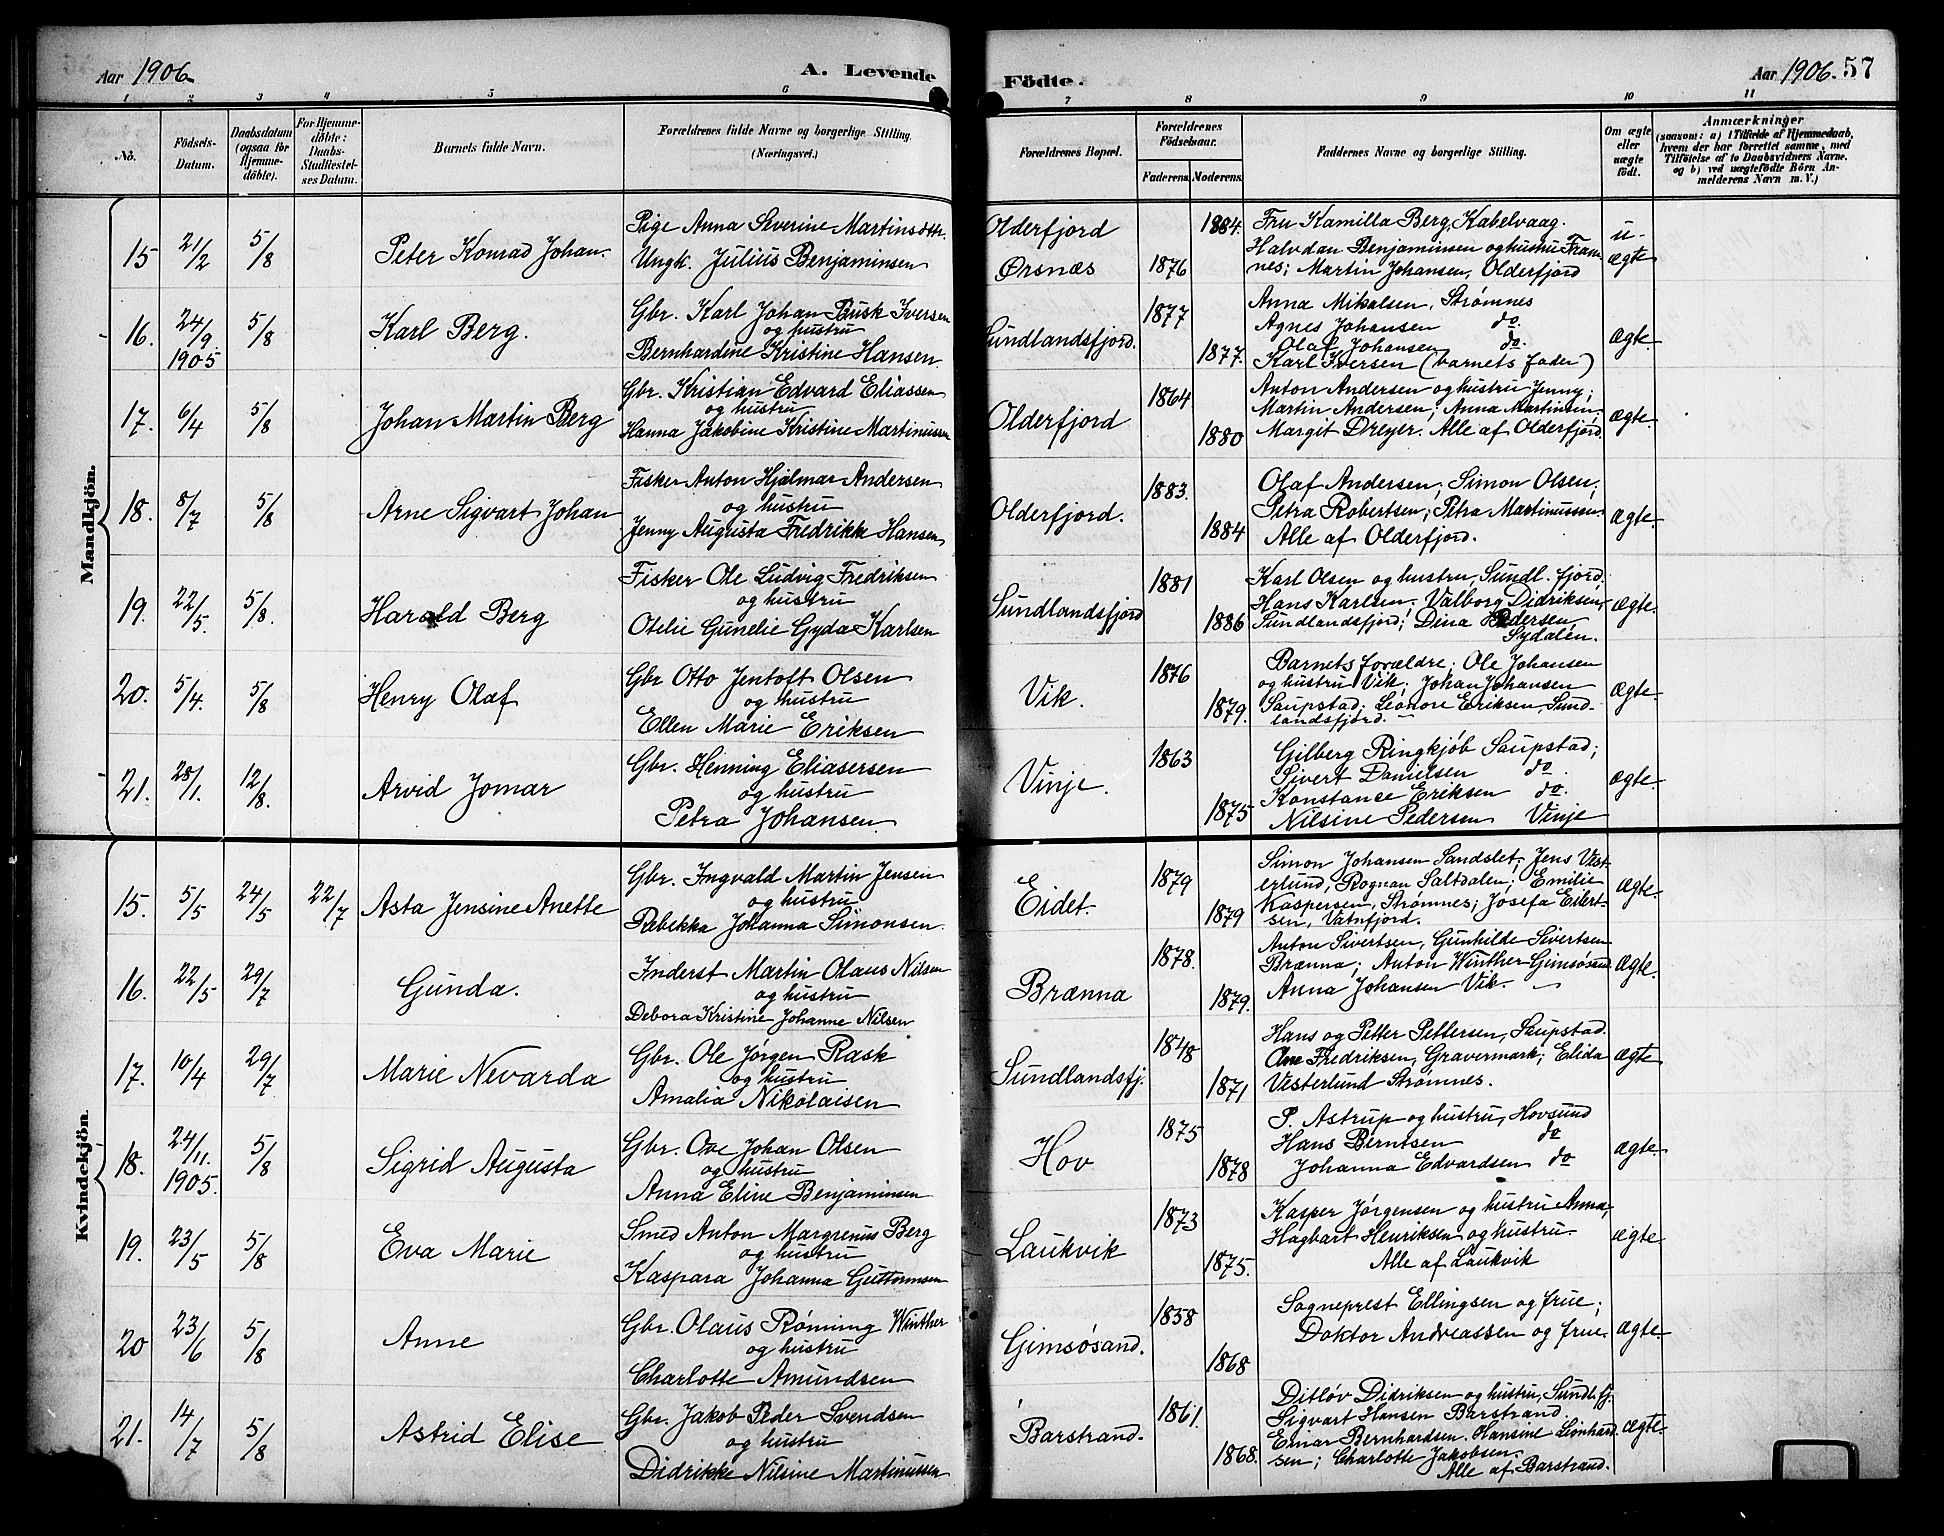 Aar 1906.
A. Levende
Födte.
Aar 1906. 57
1 2 3 4 5 6 7 8 9 10 11
No.
Födsels-
Datum.
Daabsdatum
(ogsaa for
Hjemme-
döbte).
For Hjemme-
döbte:
Daabs-
Stadfæstel-
ses Datum.
Barnets fulde Navn.
Forældrenes fulde Navne og borgerlige Stilling.
(Næringsvei.)
Forældrenes Bopæl.
Forældrenes
Födselsaar.
Faderens. Moderens.
Faddernes Navne og borgerlige Stilling.
Om ægte
eller
uægte
födt.
Anmærkninger
(saasom: a) i Tilfælde af Hjemmedaab,
hvem der har forrettet samme, med
Tilföielse af to Daabsvidners Navne,
og b) ved uægtefödte Börn An-
melderens Navn m. V.)
Mandkjön.
15 21/2 5/8 Peter Konrad Johan.
Pige Anna Severine Martinsdttr.
Ungk. Julius Benjaminsen
Olderfjord
Ørsnæs
1876 1884.
Fru Kamilla Berg, Kabelvaag.
Halvdan Benjaminsen og hustru Fram-
nes; Martin Johansen, Olderfjord
u-
ægte
16. 24/9 1905 5/8 Karl Berg.
Gbr. Karl Johan Busk Iversen
og hustru
Bernhardine Kristine Hansen.
Sundlandsfjord.
1877 1877.
Anna Mikalsen, Strømnes
Agnes Johansen do.
Olaf Johansen do.
Karl Iversen (barnets fader)
ægte
17. 6/4 5/8 Johan Martin Berg
Gbr. Kristian Edvard Eliassen
og hustru
Hanna Jakobine Kristine Martinussen
Olderfjord
1864 1880
Anton Andersen og hustru Jenny;
Martin Andersen; Anna Martinsen;
Margit Dreyer. Alle af Olderfjord.
ægte.
18. 8/7 5/8 Arne Sigvart Johan
Fisker Anton Hjalmar Andersen
og hustru
Jenny Augusta Fredrikke Hansen
Olderfjord.
1883. 1884
Olaf Andersen; Simon Olsen;
Petra Robertsen; Petra Martinussen.
Alle af Olderfjord.
ægte.
19. 22/5. 5/8. Harald Berg
Fisker Ole Ludvig Fredriksen
og hustru
Otelie Gunelie Gyda Karlsen
Sundlandsfjord
1881 1886
Karl Olsen og hustru, Sundl. fjord.
Hans Karlsen. Valborg Didriksen,
Sundlandsfjord; Dina Pedersen
Sydalen.
ægte.
20. 5/4. 5/8 Henry Olaf
Gbr Otto Jentoft Olsen
og hustru
Ellen Marie Eriksen
Vik.
1876 1879.
Barnets forældre; Ole Johansen
og hustru Vik; Johan Johansen
Saupstad; Leonore Eriksen, Sund-
landsfjord.
ægte.
21. 28/1. 12/8. Arvid Jomar
Gbr. Henning Eliasersen
og hustru
Petra Johansen.
Vinje.
1863 1875
Gilberg Ringkjøb Saupstad;
Sivert Danielsen do.
Konstance Eriksen do.
Nilsine Pedersen Vinje
ægte.
Kvindekjön.
15. 5/5 24/5 22/7 Asta Jensine Anette
Gbr. Ingvald Martin Jensen
og hustru
Rebekka Johanna Simonsen.
Eidet.
1879 1879
Simon Johansen Sandslet; Jens Vest-
erlund, Rognan Saltdalen; Emilie
Kaspersen, Strømnes; Josefa Eilert-
sen, Vatnfjord.
ægte.
16. 22/5 29/7 Gunda.
Inderst Martin Olaus Nilsen
og hustru
Debora Kristine Johanne Nilsen
Brænna
1878. 1879.
Anton Sivertsen, Gunhilde Sivertsen
Brænna; Anton Winther Gimsøsand
Anna Johansen Vik.
ægte.
17. 10/4 29/7 Marie Nevarda
Gbr. Ole Jørgen Rask
og hustru
Amalia Nikolaisen
Sundlandsfj.
1848 1871
Hans og Petter Pettersen, Saupstad.
Ane Fredriksen, Gravermark; Elida
Vesterlund Strømnes.
ægte
18. 24/11. 1905. 5/8 Sigrid Augusta
Gbr. Ove Johan Olsen
og hustru
Anna Eline Benjaminsen
Hov
1875 1878
P. Astrup og hustru, Hovsund
Hans Berntsen do
Johanna Edvardsen do
ægte
19. 23/5 5/8 Eva Marie
Smed Anton Margrenus Berg
og hustru
Kaspara Johanna Guttormsen
Laukvik
1873 1875.
Kasper Jørgensen og hustru Anna;
Hagbart Henriksen og hustru.
Alle af Laukvik
ægte
20 23/6 5/8 Anne
Gbr. Olaus Rønning Winther
og hustru
Charlotte Amundsen
Gimsøsand.
1858 1868
Sogneprest Ellingsen og frue;
Doktor Andreassen og frue.
ægte
21. 14/7 5/8 Astrid Elise
Gbr. Jakob Peder Svendsen
og hustru
Didrikke Nilsine Martinussen
Barstrand.
1861. 1868.
Ditløv Didriksen og hustru, Sundl. fj.
Sigvart Hansen Barstrand
Einar Bernhardsen. Hansine Leonhard-
sen; Charlotte Jakobsen.
Alle af Barstrand.
ægte